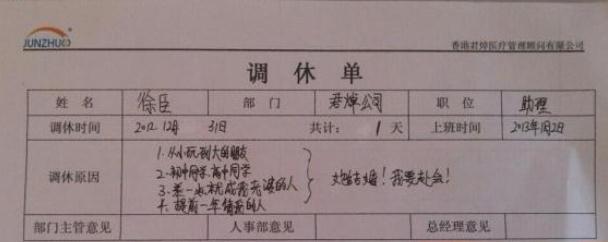 JUNZHUO 香港君焯医疗管理顾问有限公司
调休单
姓名 徐臣 部门 君焯公司 职位 助理
调休时间 2012.12月 31日 共计: 1 天 上班时间 2013年1月2日
1.从小玩到大的朋友
2.初中同学.高中同学
调休原因 结婚！我要赴会！
3.差一点就成我老婆的人
4.提前一年 的人
部门主管意见 人事部意见 总经理意见